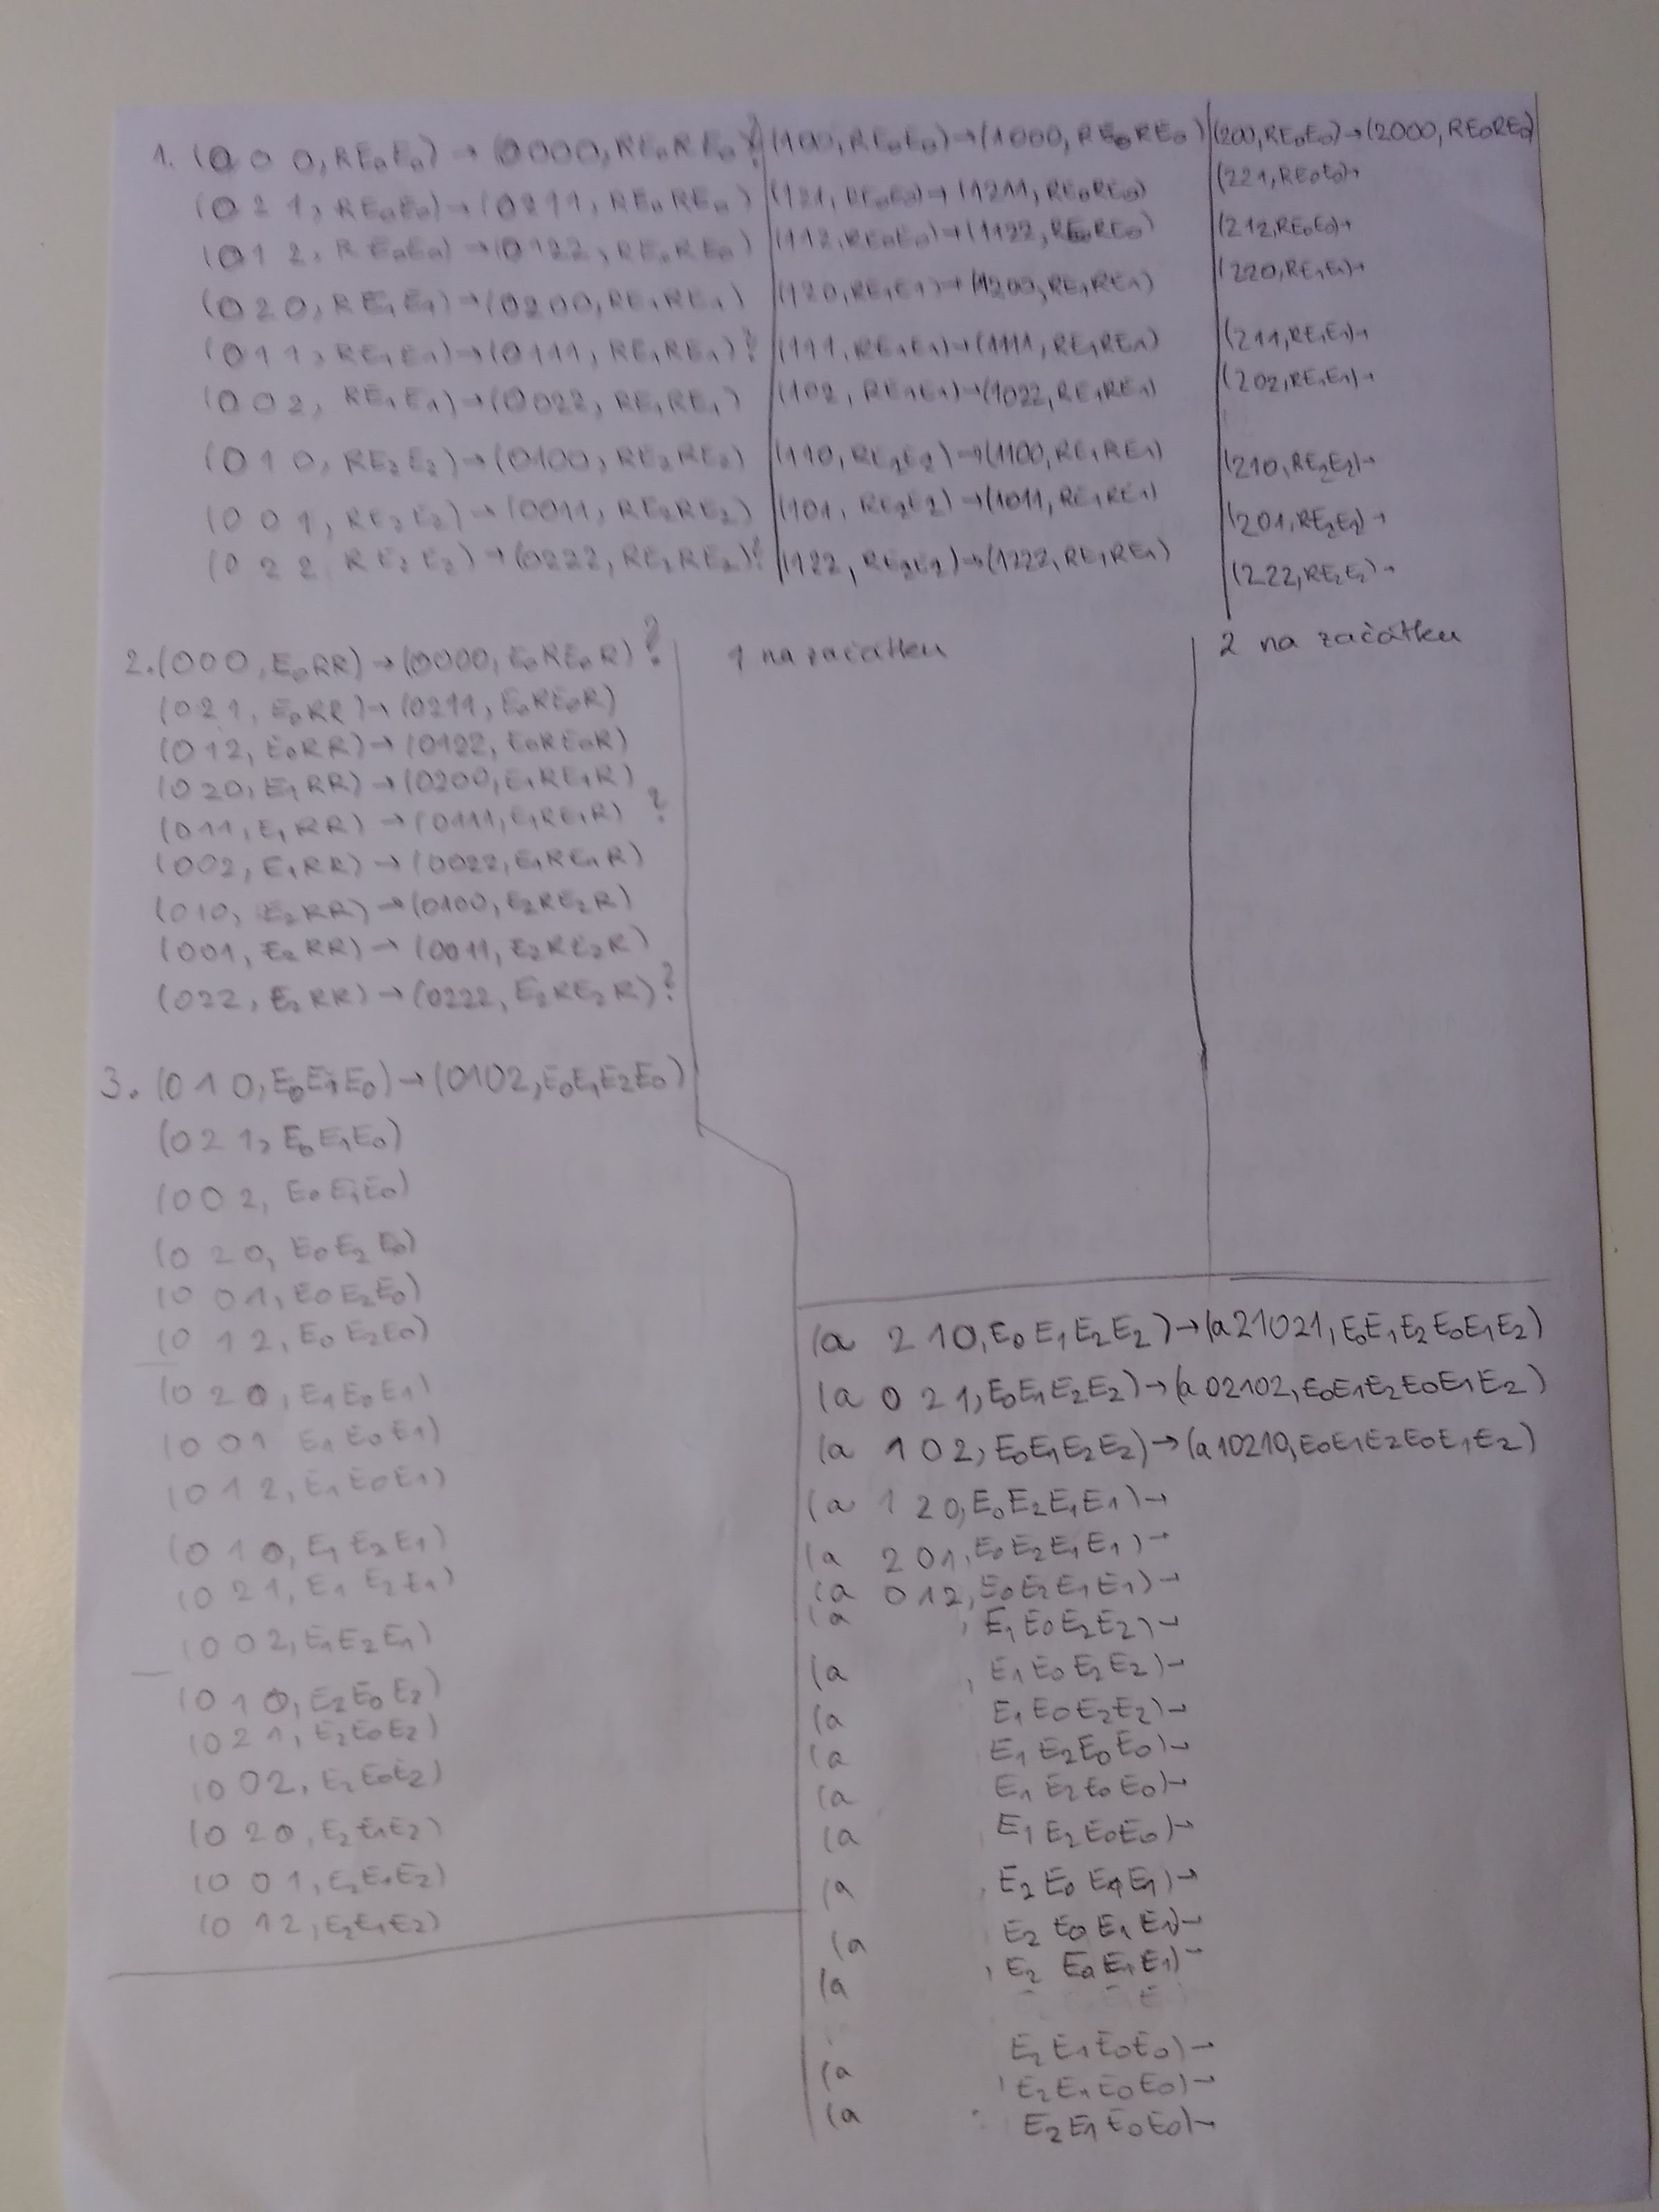 1. (000, RE₀E₀) → (0000, RE₀RE₀)?
(021, RE₀E₀) → (0211, RE₀RE₀)
(012, RE₀E₀) → (0122, RE₀RE₀)
(020, RE₁E₁) → (0200, RE₁RE₁)
(011, RE₁E₁) → (0111, RE₁RE₁)?
(002, RE₁E₁) → (0022, RE₁RE₁)
(010, RE₂E₂) → (0100, RE₂RE₂)
(001, RE₂E₂) → (0011, RE₂RE₂)
(022, RE₂E₂) → (0222, RE₂RE₂)?
(100, RE₀E₀) → (1000, RE₀RE₀)
(121, RE₀E₀) → (1211, RE₀RE₀)
(112, RE₀E₀) → (1122, RE₀RE₀)
(120, RE₁E1) → (1200, RE₁RE₁)
(111, RE₁E₁) → (1111, RE₁RE₁)
(102, RE₁E₁) → (1022, RE₁RE₁)
(110, RE₂E₂) → (1100, RE₁RE₁)
(101, RE₂E₂) → (1011, RE₁RE₁)
(122, RE₂E₂) → (1222, RE₁RE₁)
(200, RE₀E₀) → (2000, RE₀RE₀)
(221, RE₀E₀) →
(212, RE₀E₀) →
(220, RE₁E₁) →
(211, RE₁E₁) →
(202, RE₁E₁) →
(210, RE₂E₂) →
(201, RE₂E₂) →
(222, RE₂E₂) →
2. (000, E₀RR) → (0000, E₀RE₀R)?
(021, E₀RR) → (0211, E₀RE₀R)
(012, E₀RR) → (0122, E₀RE₀R)
(020, E₁RR) → (0200, E₁RE₁R)
(011, E₁RR) → (0111, E₁RE₁R)?
(002, E₁RR) → (0022, E₁RE₁R)
(010, E₂RR) → (0100, E₂RE₂R)
(001, E₂RR) → (0011, E₂RE₂R)
(022, E₂RR) → (0222, E₂RE₂R)?
1 na začátku
2 na začátku
3. (010, E₀E₁E₀) → (0102, E₀E₁E₂E₀)
(021, E₀E₁E₀)
(002, E₀E₁E₀)
(020, E₀E₂E₀)
(001, E₀E₂E₀)
(012, E₀E₂E₀)
(020, E₁E₀E₁)
(001 E₁E₀E₁)
(012, E₁E₀E₁)
(010, E₁E₂E₁)
(021, E₁E₂E₁)
(002, E₁E₂E₁)
(010, E₂E₀E₂)
(021, E₂E₀E₂)
(002, E₂E₀E₂)
(020, E₂E₁E₂)
(001, E₂E₁E₂)
(012, E₂E₁E₂)
(a 210, E₀E₁E₂E₂) → (a21021, E₀E₁E₂E₀E₁E₂)
(a 021, E₀E₁E₂E₂) → (a02102, E₀E₁E₂E₀E₁E₂)
(a 102, E₀E₁E₂E₂) → (a10210, E₀E₁E₂E₀E₁E₂)
(a 120, E₀E₂E₁E₁) →
(a 201, E₀E₂E₁E₁) →
(a 012, E₀E₂E₁E₁) →
(a , E₁E₀E₂E₂) →
(a , E₁E₀E₂E₂) →
(a E₁E₀E₂E₂) →
(a E₁E₂E₀E₀) →
(a E₁E₂E₀E₀) →
(a E₁E₂E₀E₀) →
(a , E₂E₀E₁E₁) →
(a E₂E₀E₁E₁) →
(a , E₂E₀E₁E₁) →
E₂E₁E₀E₀) →
(a , E₂E₁E₀E₀) →
(a E₂E₁E₀E₀) →